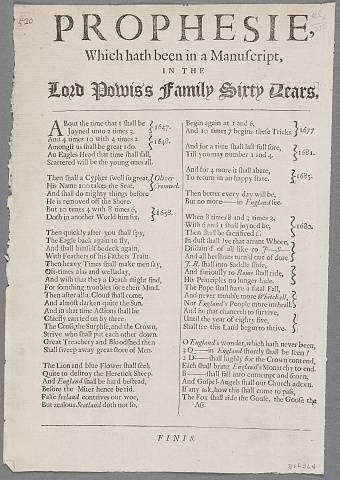 PROPHESIE,
Which hath been in a Manuscript,
IN THE
Lord Powis's Family Sixty Years.
ABout the time that 1 shall be
Joyned unto 2 times 3,
And 4 times 10 with 4 times 2
Amongst us shall be great ado.
An Eagles Head that time shall fall,
Scattered will be the young ones all.
1647.
1648.
Then shall a Cypher swell so great,
His Name 100 takes the Seat,
And shall do mighty things before
He is removed off the Shore.
But 10 times 4 with 8 times 6,
Doth in another World him fix.
Oliver
Cromwel.
1658.
Then quickly after shall you spy,
The Eagle back again to fly,
And shall himself bedeck again,
With Feathers of his Fathers Train.
Then heavy Times shall make men say,
Oft-times alas and welladay,
And wish that they a Death might find,
For something troubles sore their Mind.
Then after all a Cloud shall come,
And almost darken quite the Sun.
And in that time Actions shall be
Chiefly carried on by three.
The Cross, the Surplise, and the Crown,
Strive who shall put each other down.
Great Treachery and Bloodshed then
Shall sweep away great store of Men.
The Lion and blue Flower shall seek
Quite to destroy the Heretick Sheep.
And England shall be hard bestead,
Before the Miter hence be rid.
False Ireland contrives our woe,
But zealous Scotland doth not so,
Begin again at 1 and 6,
And 10 times 7 begins these Tricks.
1677
And for a time shall last full sore,
Till you may number 1 and 4.
1681.
And for 4 more it shall abate,
To return in an happy state.
1685.
Then better every day will be,
But no more—in England see.
When 8 times 8 and 3 times 2,
With 6 and 1 shall joyned be,
Then shall be sacrificed C.
In dust shall lye that arrant Whore,
Disdain'd of all like to J——
And all her Brats turn'd out of dore
J. R. shall into Saddle slide,
And furiously to Rome shall ride,
His Principles no longer hide.
The Pope shall have a fatal Fall,
And never trouble more Whitehall,
Nor England's People more inthrall.
And he that chanceth to survive,
Until the year of eighty five,
Shall see this Land begin to thrive.
O England's wonder, which hath never been,
3 Q— in England shortly shall be seen!
2 D—shall highly for the Crown contend,
Each shall bring England's Monarchy to end.
B——shall fall into contempt and scorn,
And Gospel-Angels shall our Church adorn.
If any ask, how this shall come to pass,
The Fox shall ride the Goose, the Goose the
Ass.
FINIS.